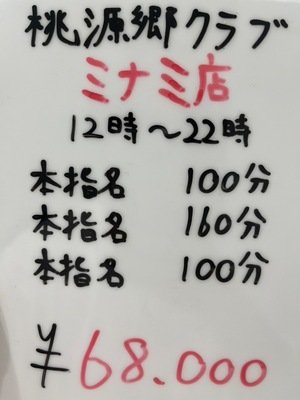 桃源郷クラブ
ミナミ店
12時～22時
本指名 100分
本指名 160分
本指名 100分
￥68.000